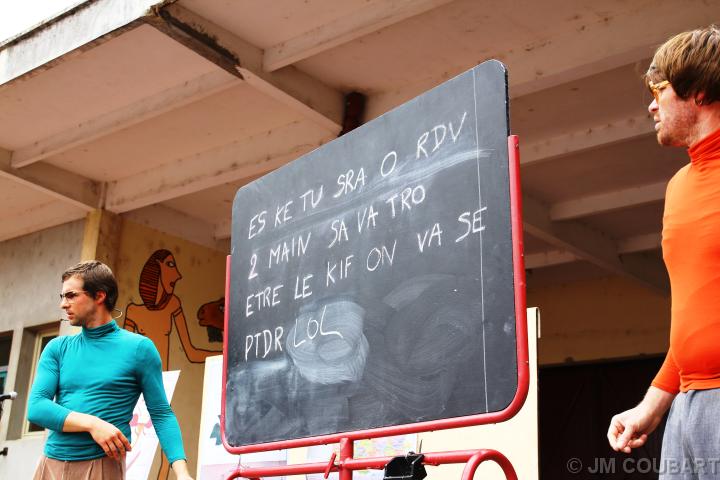 ES KE TU SRA O RDV
2 MAIN SA VA TRO
ETRE LE KIF ON VA SE
PTDR LOL
© JM COUBART